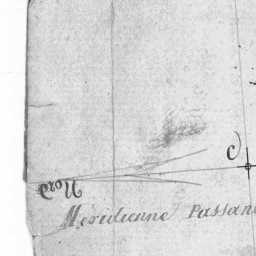 C
Nord
Meridienne Passan